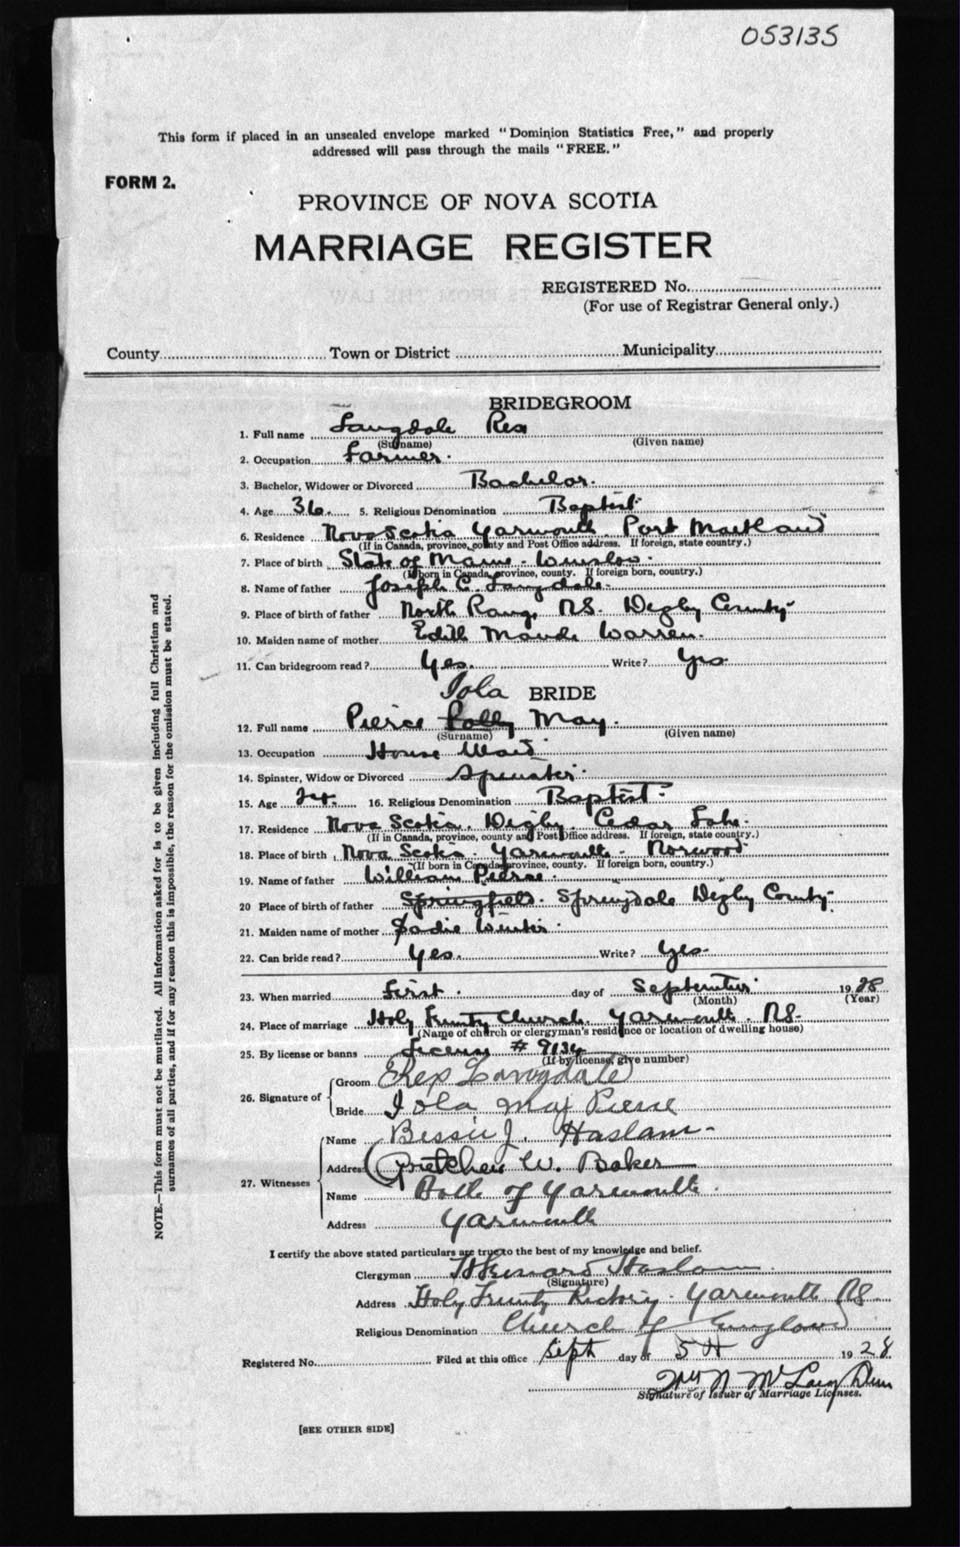 053135
This form if placed in an unsealed envelope marked "Dominion Statistics Free," and properly
addressed will pass through the mails "FREE."
FORM 2.
PROVINCE OF NOVA SCOTIA
MARRIAGE REGISTER
REGISTERED No.
(For use of Registrar General only.)
County Town or District Municipality
BRIDEGROOM
1. Full name Langdale Rex
(Surname) (Given name)
2. Occupation Farmer.
3. Bachelor, Widower or Divorced Bachelor.
4. Age 36. 5. Religious Denomination Baptist
6. Residence Nova Scotia Yarmouth. Port Maitland
(If in Canada, province, county and Post Office address. If foreign, state country.)
7. Place of birth State of Maine. Winslow.
(If born in Canada, province, county. If foreign born, country.)
8. Name of father Joseph C. Langdale.
9. Place of birth of father North Range, N.S. Digby County
10. Maiden name of mother Edith Maude Warren.
11. Can bridegroom read? Yes. Write? Yes
Iola BRIDE
12. Full name Pierce May.
(Surname) (Given name)
13. Occupation House Maid
14. Spinster, Widow or Divorced Spinster.
15. Age 24. 16. Religious Denomination Baptist.
17. Residence Nova Scotia. Digby. Cedar Lake.
(If in Canada, province, county and Post Office address. If foreign, state country.)
18. Place of birth Nova Scotia. Yarmouth. Norwood
(If born in Canada, province, county. If foreign born, country.)
19. Name of father William Pierce.
20 Place of birth of father Springfield. Springdale Digby County.
21. Maiden name of mother Sadie Winter.
22. Can bride read? Yes. Write? Yes.
23. When married first. day of September. 1928
(Month) (Year)
24. Place of marriage Holy Trinity Church. Yarmouth. N.S.
(Name of church or clergyman's residence or location of dwelling house)
25. By license or banns License # 9134
(If by license, give number)
26. Signature of Groom Rex Langdale
Bride Iola May Pierce
27. Witnesses Name Bessie J. Haslam
Address Gretchen W. Baker
Name Both of Yarmouth.
Address Yarmouth
I certify the above stated particulars are true to the best of my knowledge and belief.
Clergyman Haslam.
(Signature)
Address Holy Trinity Rectory. Yarmouth NS
Religious Denomination Church of England
Registered No. Filed at this office Sept day of 5th 1928.
Signature of Issuer of Marriage Licenses.
[SEE OTHER SIDE]
NOTE.—This form must not be mutilated. All information asked for is to be given including full Christian and
surnames of all parties, and if for any reason this is impossible, the reason for the omission must be stated.